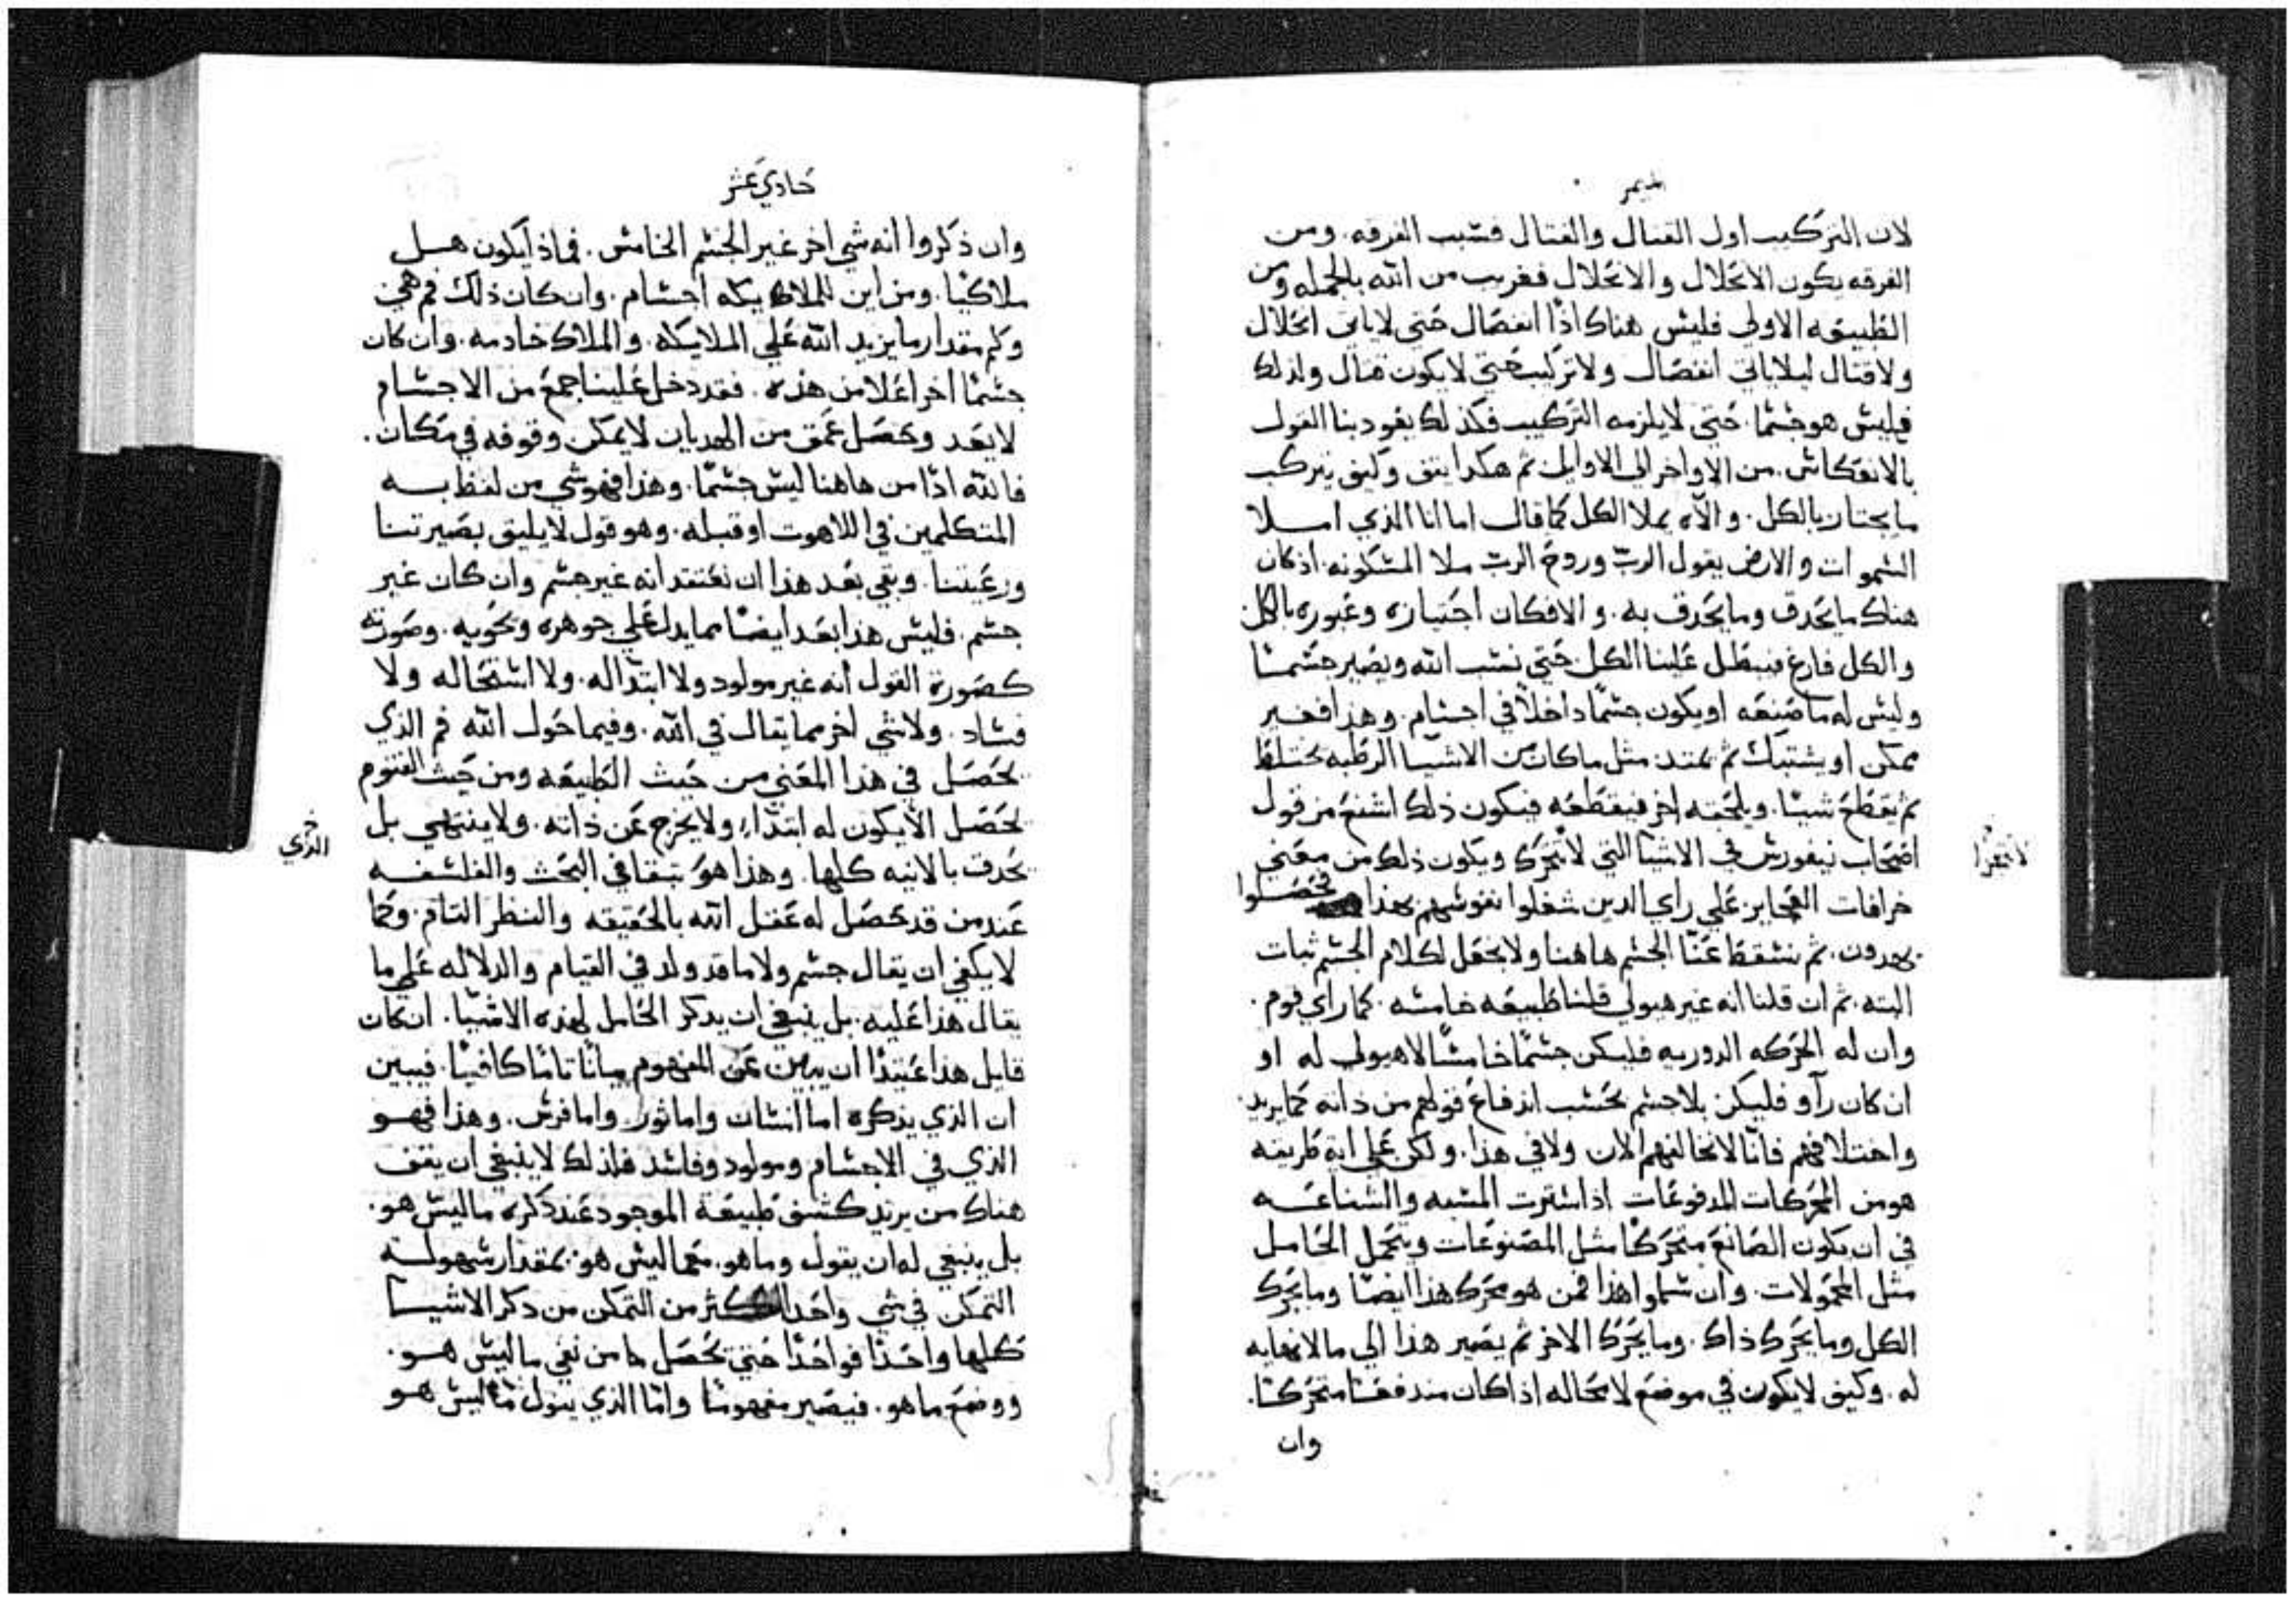 الميمر
لان التركيب اول القتال والقتال فسبب الفرقه. ومن
الفرقه يكون الانحلال والانحلال فغريب من الله بالجمله ومن
الطبيعه الاولي فليس هناك اذًا انفصال حتي لاياتي انحلال
ولاقتال ليلاياتي انفصال ولاتركيب حتي لايكون قتال ولذلك
فليس هو جسما. حتي لايلزمه التركيب فكذلك يقودبنا القول
بالانعكاس. من الاواخر الي الاوايل ثم هكدا يتق وكيف يتركب
ما يجتاز بالكل. والاه يملا الكل كما قال اما انا الذي املا
السموات والارض يقول الربّ وروح الربّ ملا المسكونه. اذ كان
هناك مايحدق ومايحدق به. والافكان اجتيازه وعبوره بالكل
والكل فارغ فيبطل علينا الكل. حتي نسب الله ويصير جسمًا
وليس له ماصنعه اويكون جسمًا داخلاً في اجسام. وهذا فغير
ممكن او يشتبك ثم يمتد. مثل ماكان من الاشيا الرطبه يختلط
ثم يقطع شيئا. ويلحقه اخر فيقطعه فيكون ذلك اشنع من قول
اصحاب نيفورس في الاشيا التي لاتتحرك ويكون ذلك من معني
لاتتقرا
خرافات العجايز. علي راي الدين شغلوا نفوسهم بهذا فحصلوا
يهدون. ثم نسقط عنّا الجسم هاهنا ولايجعل لكلام الجسم ثبات
البته. ثم ان قلنا انه غير هيولي قلنا طبيعه خامسه. كما راي قوم.
وان له الحركه الدوريه فليكن جسمًا خامسًا لاهيولي له او
ان كان رآو فليكن بلاجسم بحسب اندفاع قولهم من ذاته كما يريد.
واختلافهم فانّا لانخالفهم الان ولافي هذا. ولكن علي اية طريقه
هو من المحركات المدفوعات اذا استرت المسبه والشناعه
في ان يكون الصانع متحركًا مثل المصنوعات ويتحمل الحامل
مثل المحمولات. وان سلموا هذا فمن هو محرك هذا ايضًا ومايحرك
الكل ومايحرك ذاك. ومايحرك الاخر ثم يصير هذا الي ما لانهايه
له. وكيف لايكون في موضع لامحاله اذا كان مندفعًا متحركًا.
وان
حادي عشر
وان ذكروا انه شي اخر غير الجسم الخامس. فماذا يكون هل
ملاكيًا. ومن اين للملايكه اجسام. وان كان ذلك فم هي
وكم مقدار مايزيد الله علي الملايكه. والملاك خادمه. وان كان
جسمًا اخر اعلا من هذه. فقد دخل علينا جمع من الاجسام
لايعد وحصل عمق من الهديان لايمكن وقوفه في مكان.
فالله اذًا من هاهنا ليس جسمًا. وهذا فهو شي من لفظ به
المتكلمين في اللاهوت اوقبله. وهو قول لايليق بصيرتنا
ورعيتنا. وبقي بعد هذا ان نعتقد انه غير جسم وان كان غير
جسم. فليس هذا بعد ايضًا مما يدل علي جوهره ونحويه. وصورته
كصورة القول انه غير مولود ولا ابتدا له. ولا استحاله ولا
فساد. ولاشي اخر مما يقال في الله. وفيما حول الله فم الذي
يحصل في هذا المعني من حيث الطبيعه ومن حيث القنوم
يحصل الايكون له ابتداء ولايخرج عن ذاته. ولا ينتهي بل
الذي
يحدق بالانيه كلها. وهذا هو يتبقا في البحث والفلسفه
عند من قد حصل له عقل الله بالحقيقه والنظر التام. وكما
لايكفي ان يقال جسم ولاما قد ولد في القيام والدلاله علي ما
يقال هذا عليه. بل ينبغي ان يدكر الحامل لهذه الاشيا. ان كان
قايل هذا عتيدًا ان يبين عن المفهوم بيانًا تامًا كافيًا. فيبين
ان الذي يذكره اما انسان واما ثور. واما فرس. وهذا فهو
الذي في الاجسام ومولود وفاسد فلذلك لاينبغي ان يقف
هناك من يريد كشف طبيعة الموجود عند ذكره ماليس هو.
بل ينبغي له ان يقول وما هو. مع ما ليس هو. بمقدار سهولة
التمكن في شي واحد اكثر من التمكن من دكر الاشيا
كلها واحدًا فواحدًا حتي يحصل ما من نفي ماليس هو.
ووضع ماهو. فيصير مفهومًا وامّا الذي يقول ماليس هو